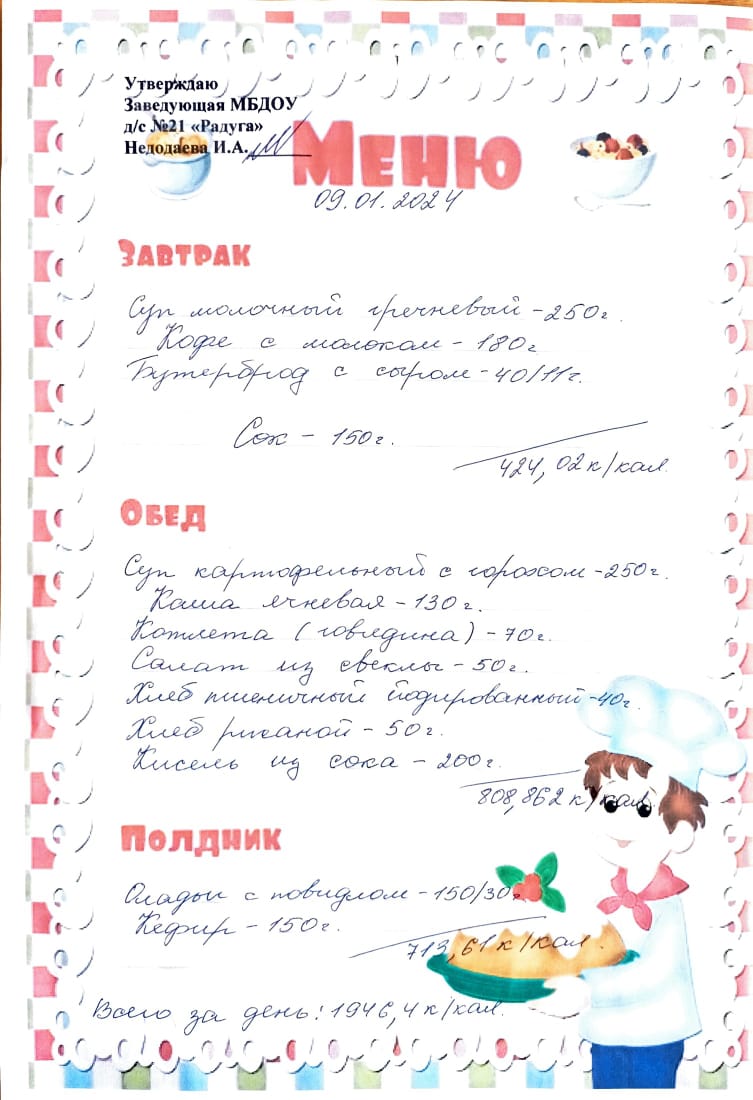 Утверждаю
Заведующая МБДОУ
д/с №21 «Радуга»
Недодаева И.А.
Меню
09.01.2024
Завтрак
Суп молочный гречневый - 250г.
Кофе с молоком - 180г
Бутерброд с сыром - 40/11г.
Сок - 150г.
424,02 к/кал.
Обед
Суп картофельный с горохом - 250г.
Каша ячневая - 130г.
Котлета (говядина) - 70г.
Салат из свеклы - 50г.
Хлеб пшеничный йодированный - 40г.
Хлеб ржаной - 50г.
Кисель из сока - 200г.
808,862 к/кал.
Полдник
Оладьи с повидлом - 150/30г
Кефир - 150г.
713,61 к/кал.
Всего за день: 1946,4 к/кал.